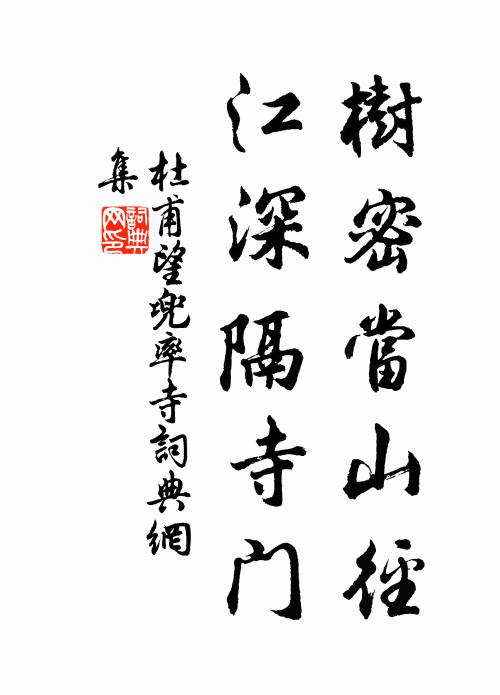 樹密當山徑
江深隔寺门
杜甫望兜率寺詞典網
集
詞典网印